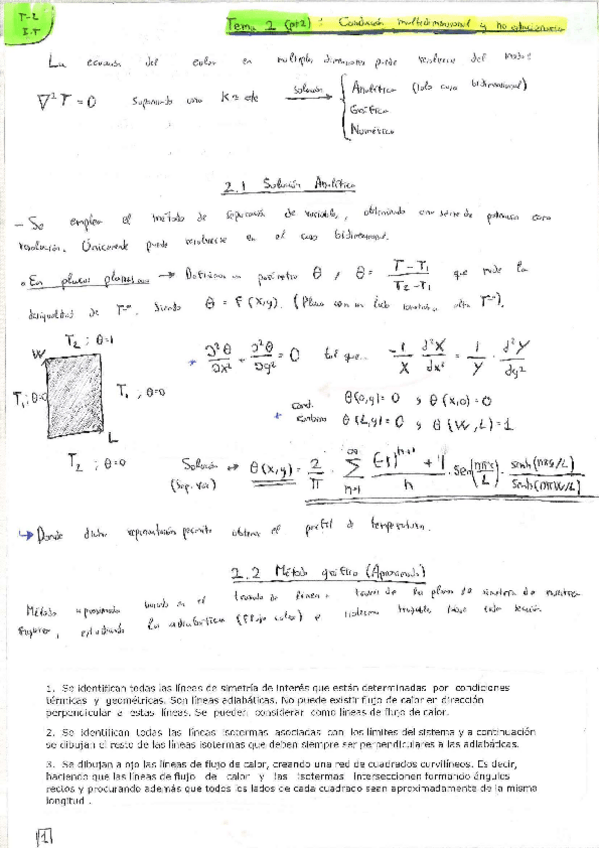 T-2
I.T
Tema 2 (pt2): Conducción multidimensional y no estacionaria
La ecuación del calor en múltiples dimensiones puede resolverse del modo:
∇²T = 0 Suponiendo una K = cte solución { Analítica (solo caso bidimensional)
Gráfica
Numérica
2.1 Solución Analítica
- Se emplea el método de separación de variables, obteniendo una serie de potencias como
resolución. Únicamente puede resolverse en el caso bidimensional.
En placas planas → Definimos un parámetro θ, θ = (T - T₁)/(T₂ - T₁) que mide la
desigualdad de Tª. Siendo θ = F(x,y). (Placa con un lado alta Tª).
T₂ ; θ=1
W
T₁; θ=0
T₁ ; θ=0
L
T₂ ; θ=0
∂²θ/∂x² + ∂²θ/∂y² = 0 tal que... -1/X · d²X/dx² = 1/Y · d²Y/dy²
Cond. contorno
θ(0,y)=0 y θ(x,0)=0
θ(L,y)=0 y θ(W,L)=1
Solución (Sep. var) → θ(x,y) = 2/π · ∑ₙ₌₁^∞ ((-1)ⁿ⁺¹ + 1)/n · sen(nπx/L) · senh(nπy/L)/senh(nπW/L)
↳ Donde dicha representación permite obtener el perfil de temperatura.
2.2 Método gráfico (Aproximado)
Método aproximado basado en el trazado de líneas a través de los planos de simetría de nuestra
figura, estudiando las adiabáticas (flujo calor) e isotermas
1. Se identifican todas las líneas de simetría de interés que están determinadas por condiciones
térmicas y geométricas. Son líneas adiabáticas. No puede existir flujo de calor en dirección
perpendicular a estas líneas. Se pueden considerar como líneas de flujo de calor.
2. Se identifican todas las líneas isotermas asociadas con los límites del sistema y a continuación
se dibujan el resto de las líneas isotermas que deben siempre ser perpendiculares a las adiabáticas.
3. Se dibujan a ojo las líneas de flujo de calor, creando una red de cuadrados curvilíneos. Es decir,
haciendo que las líneas de flujo de calor y las isotermas interseccionen formando ángulos
rectos y procurando además que todos los lados de cada cuadrado sean aproximadamente de la misma
longitud.
1